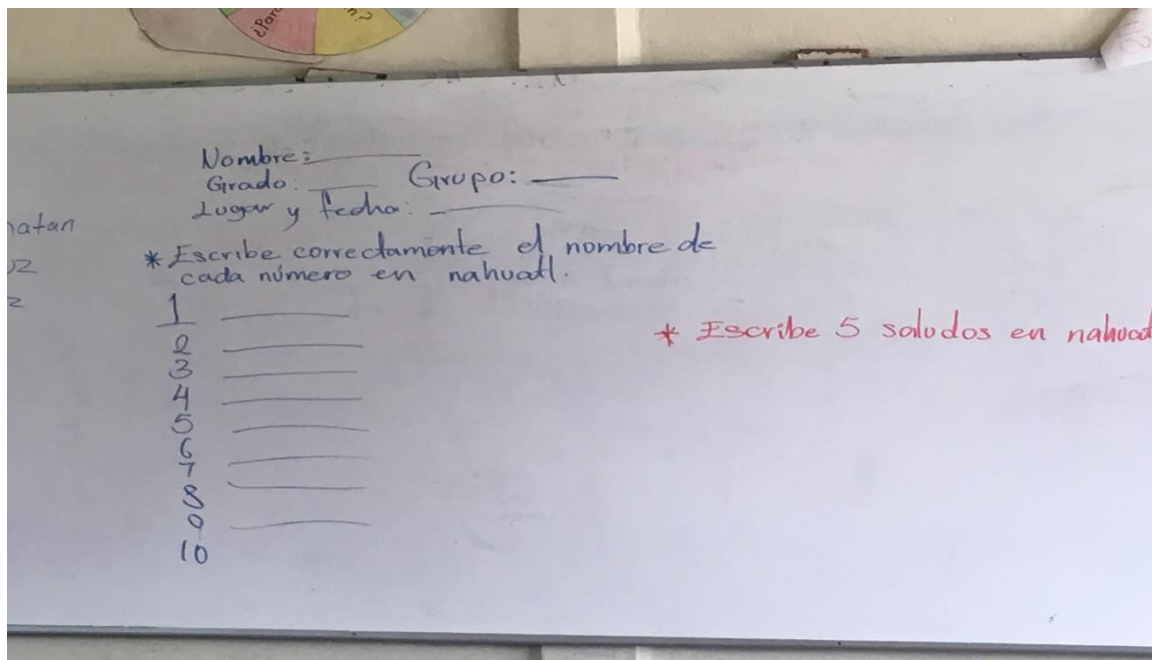 ¿Par
n?
Nombre: ____
Grado: ____ Grupo: ____
Lugar y fecha: ____
* Escribe correctamente el nombre de
cada número en nahuatl.
1 ____
2 ____
3 ____
4 ____
5 ____
6 ____
7 ____
8
9 ____
10
* Escribe 5 saludos en nahuat
atan
02
z